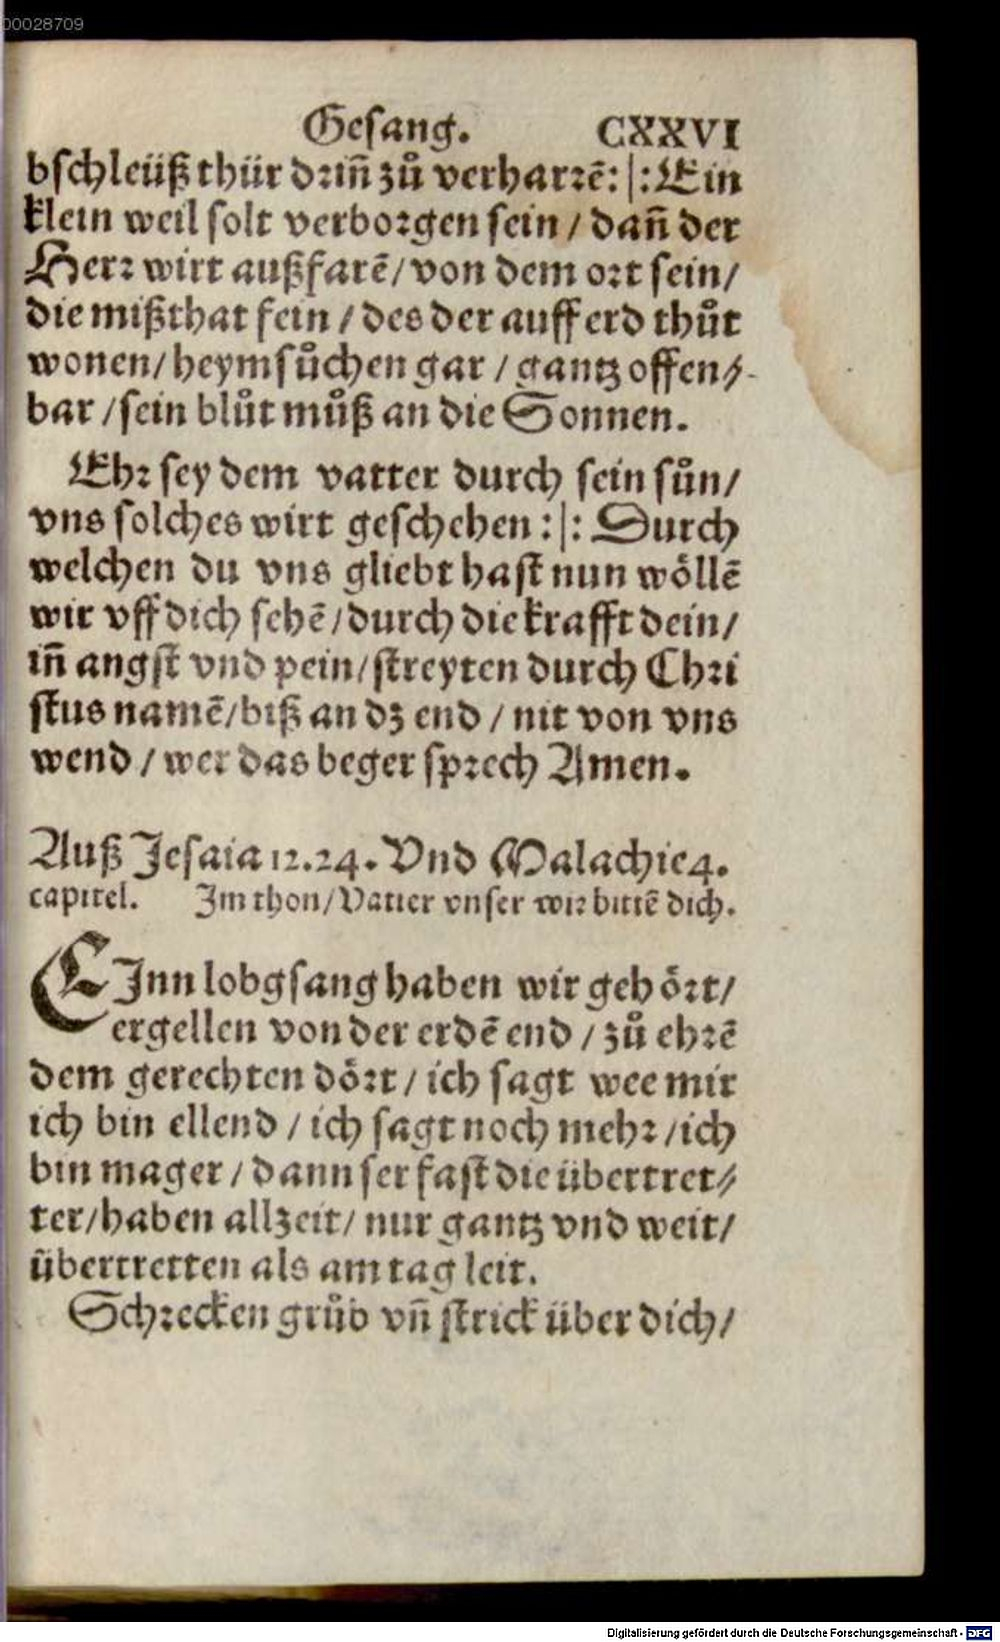 00028709
Gesang. CXXVI
bschleüß thür drin̄ zů verharrē: |: Ein
klein weil solt verborgen sein / dan̄ der
Herr wirt außfarē / von dem ort sein /
die mißthat fein / des der auff erd thůt
wonen / heymsůchen gar / gantz offen⸗
bar / sein blůt můß an die Sonnen.
Ehr sey dem vatter durch sein sůn /
vns solches wirt geschehen : |: Durch
welchen du vns gliebt hast nun wöllē
wir vff dich sehē / durch die krafft dein /
in̄ angst vnd pein / streyten durch Chri
stus namē / biß an dz end / nit von vns
wend / wer das beger sprech Amen.
Auß Jesaia 12.24. Vnd Malachie 4.
capitel. Im thon / Vatter vnser wir bittē dich.
EInn lobgsang haben wir gehört /
ergellen von der erdē end / zů ehrē
dem gerechten dört / ich sagt wee mir
ich bin ellend / ich sagt noch mehr / ich
bin mager / dann ser fast die übertret⸗
ter / haben allzeit / nur gantz vnd weit /
übertretten als am tag leit.
Schrecken grůb vn̄ strick über dich /
Digitalisierung gefördert durch die Deutsche Forschungsgemeinschaft - DFG